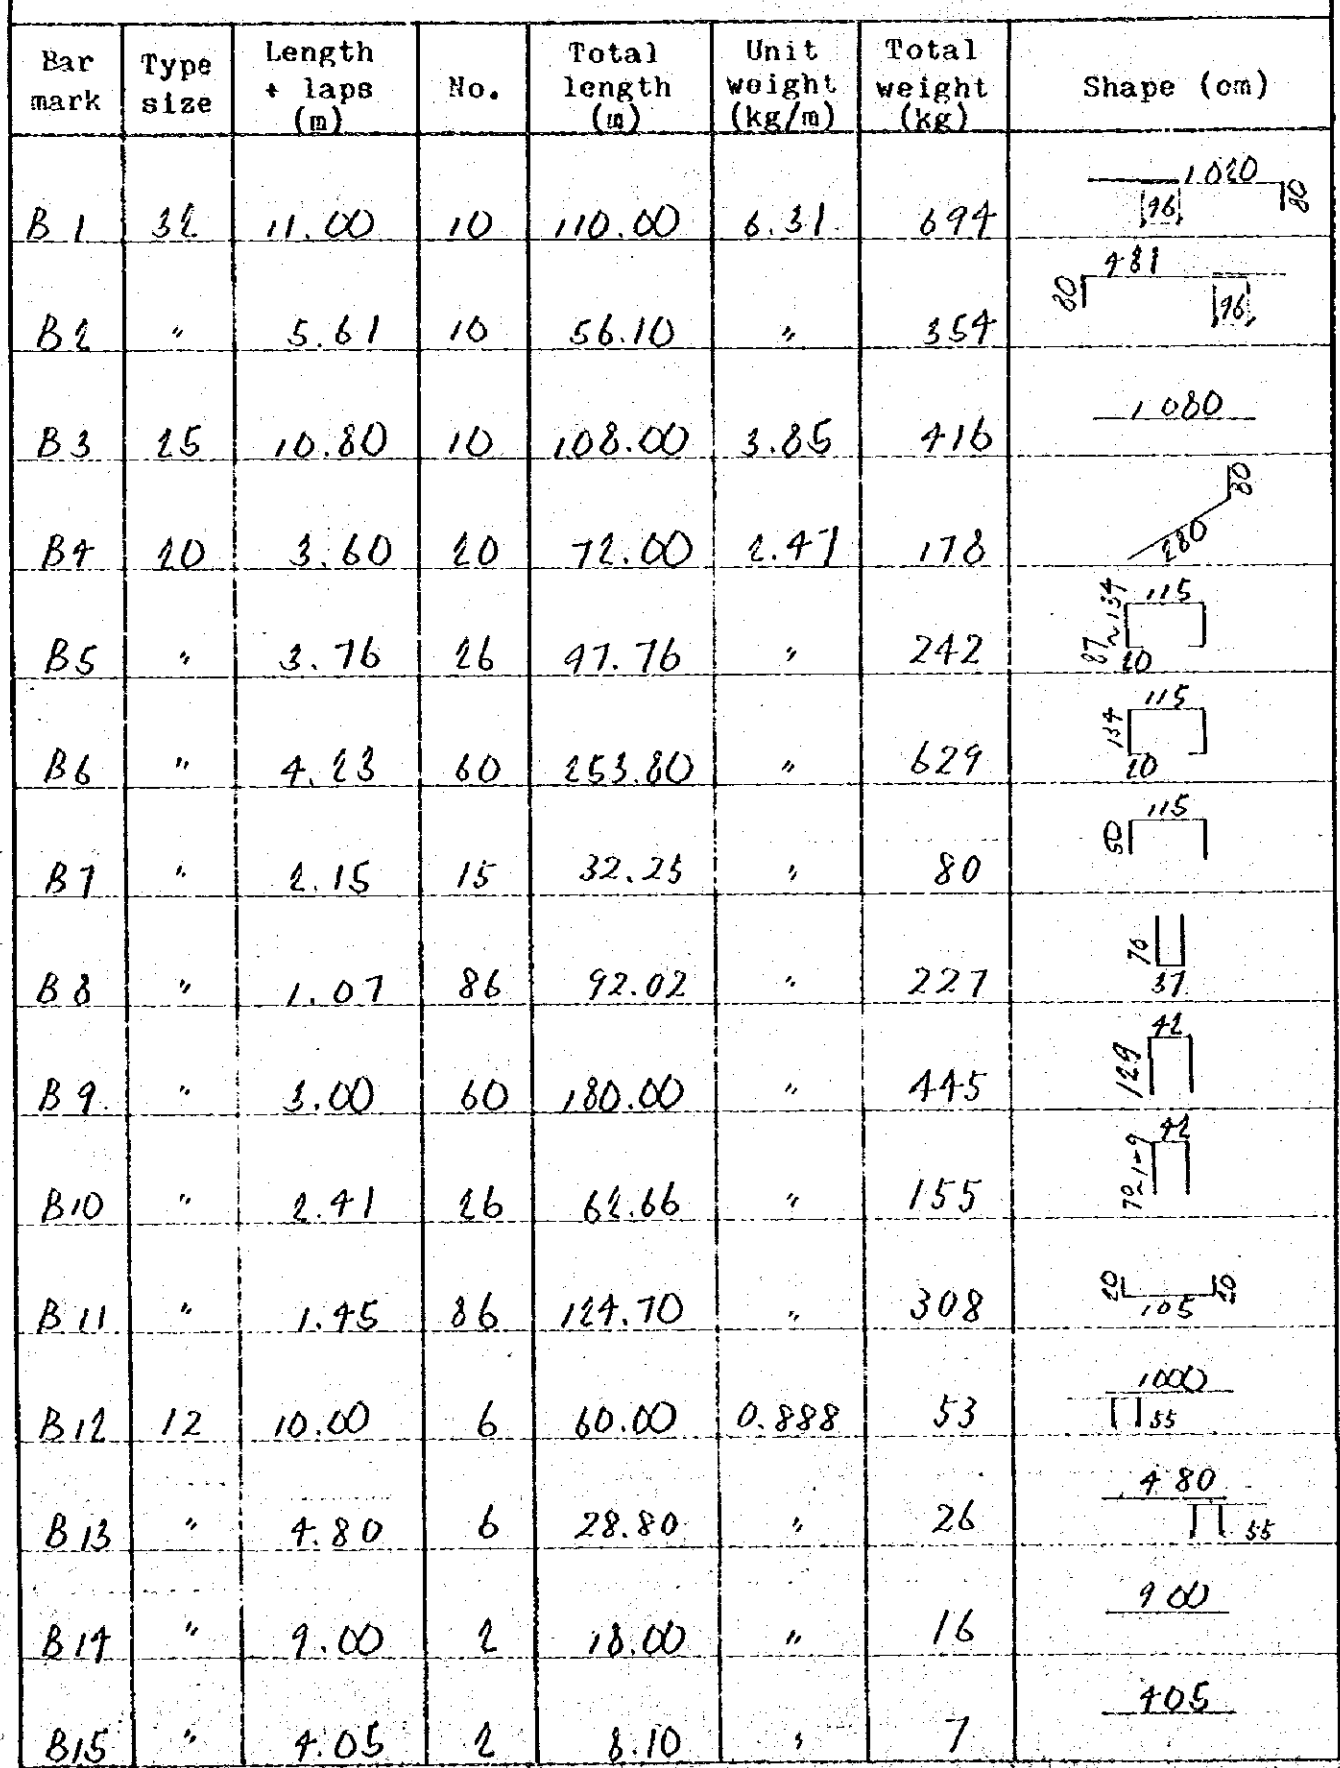 Bar mark | Type size | Length + laps (m) | No. | Total length (m) | Unit weight (kg/m) | Total weight (kg) | Shape (cm)
B 1 | 32 | 11.00 | 10 | 110.00 | 6.31 | 694 | 1020 96 80
B 2 | " | 5.61 | 10 | 56.10 | " | 354 | 80 481 96
B 3 | 25 | 10.80 | 10 | 108.00 | 3.85 | 416 | 1080
B 4 | 20 | 3.60 | 20 | 72.00 | 2.47 | 178 | 280 80
B 5 | " | 3.76 | 26 | 97.76 | " | 242 | 87~134 115 20
B 6 | " | 4.23 | 60 | 253.80 | " | 629 | 134 115 20
B 7 | " | 2.15 | 15 | 32.25 | " | 80 | 50 115
B 8 | " | 1.07 | 86 | 92.02 | " | 227 | 70 37
B 9 | " | 3.00 | 60 | 180.00 | " | 445 | 129 42
B 10 | " | 2.41 | 26 | 62.66 | " | 155 | 42
B 11 | " | 1.45 | 86 | 124.70 | " | 308 | 20 105 20
B 12 | 12 | 10.00 | 6 | 60.00 | 0.888 | 53 | 1000 55
B 13 | " | 4.80 | 6 | 28.80 | " | 26 | 480 55
B 14 | " | 9.00 | 2 | 18.00 | " | 16 | 900
B 15 | " | 4.05 | 2 | 8.10 | " | 7 | 405